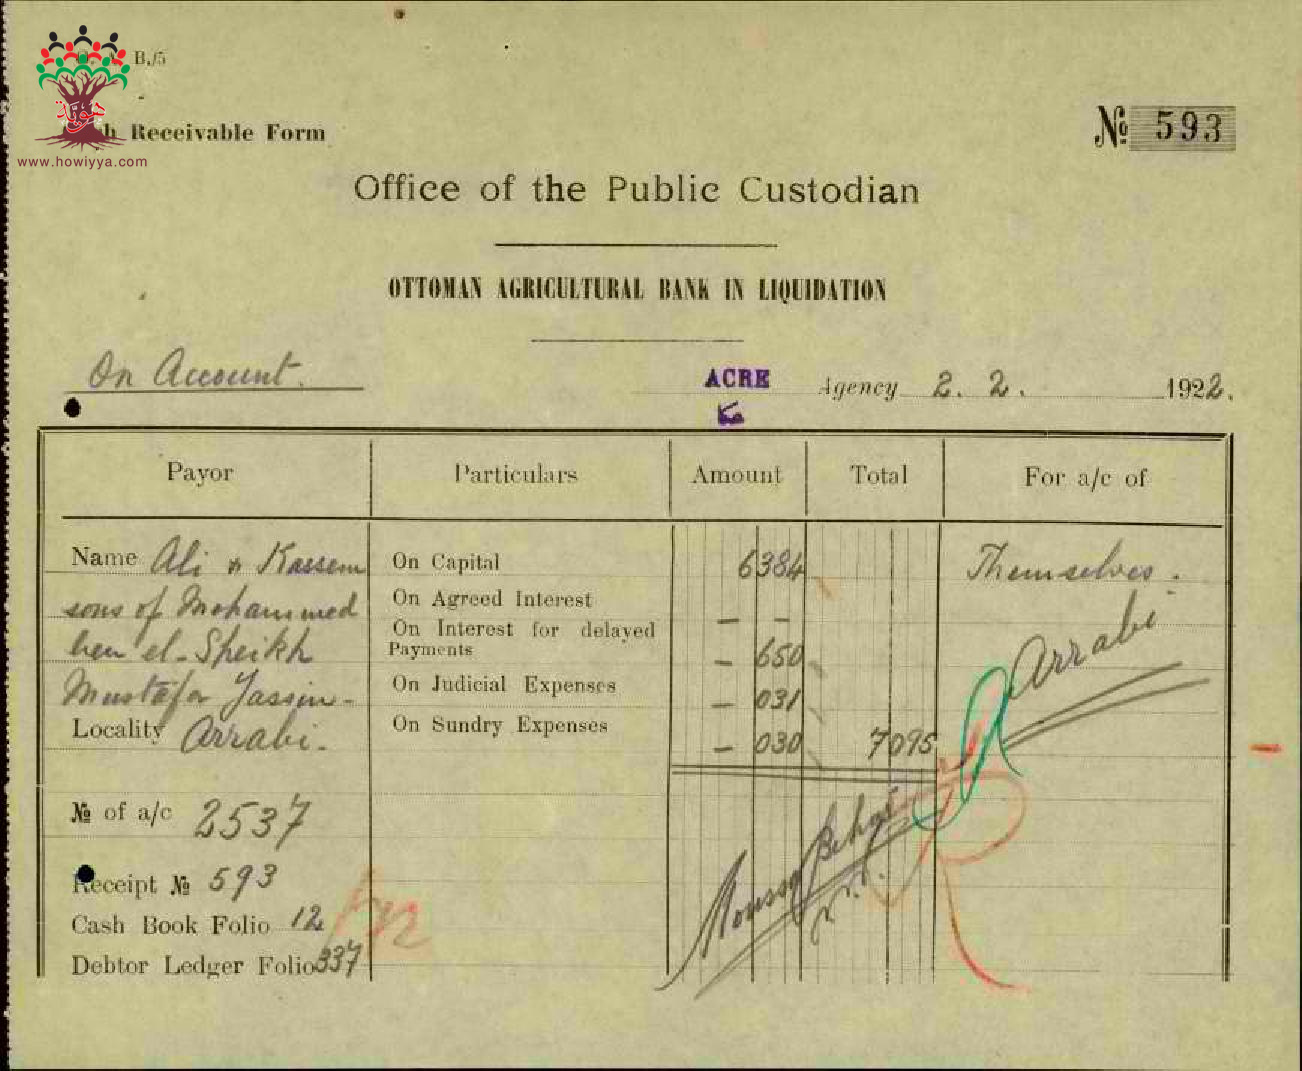 B./5
هوية
www.howiyya.com
h Receivable Form
№ 593
Office of the Public Custodian
OTTOMAN AGRICULTURAL BANK IN LIQUIDATION
On Account.
ACRE Agency 2. 2. 1922.
Payor Particulars Amount Total For a/c of
Name Ali & Kassem On Capital 6384 Themselves.
sons of Mohammed On Agreed Interest — —
ben el-Sheikh On Interest for delayed Payments — 650 Arrabi
Mustafa Yassin- On Judicial Expenses — 031
Locality Arrabi. On Sundry Expenses — 030 7095
№ of a/c 2537
Receipt № 593
Cash Book Folio 12
Debtor Ledger Folio 337
Moussa